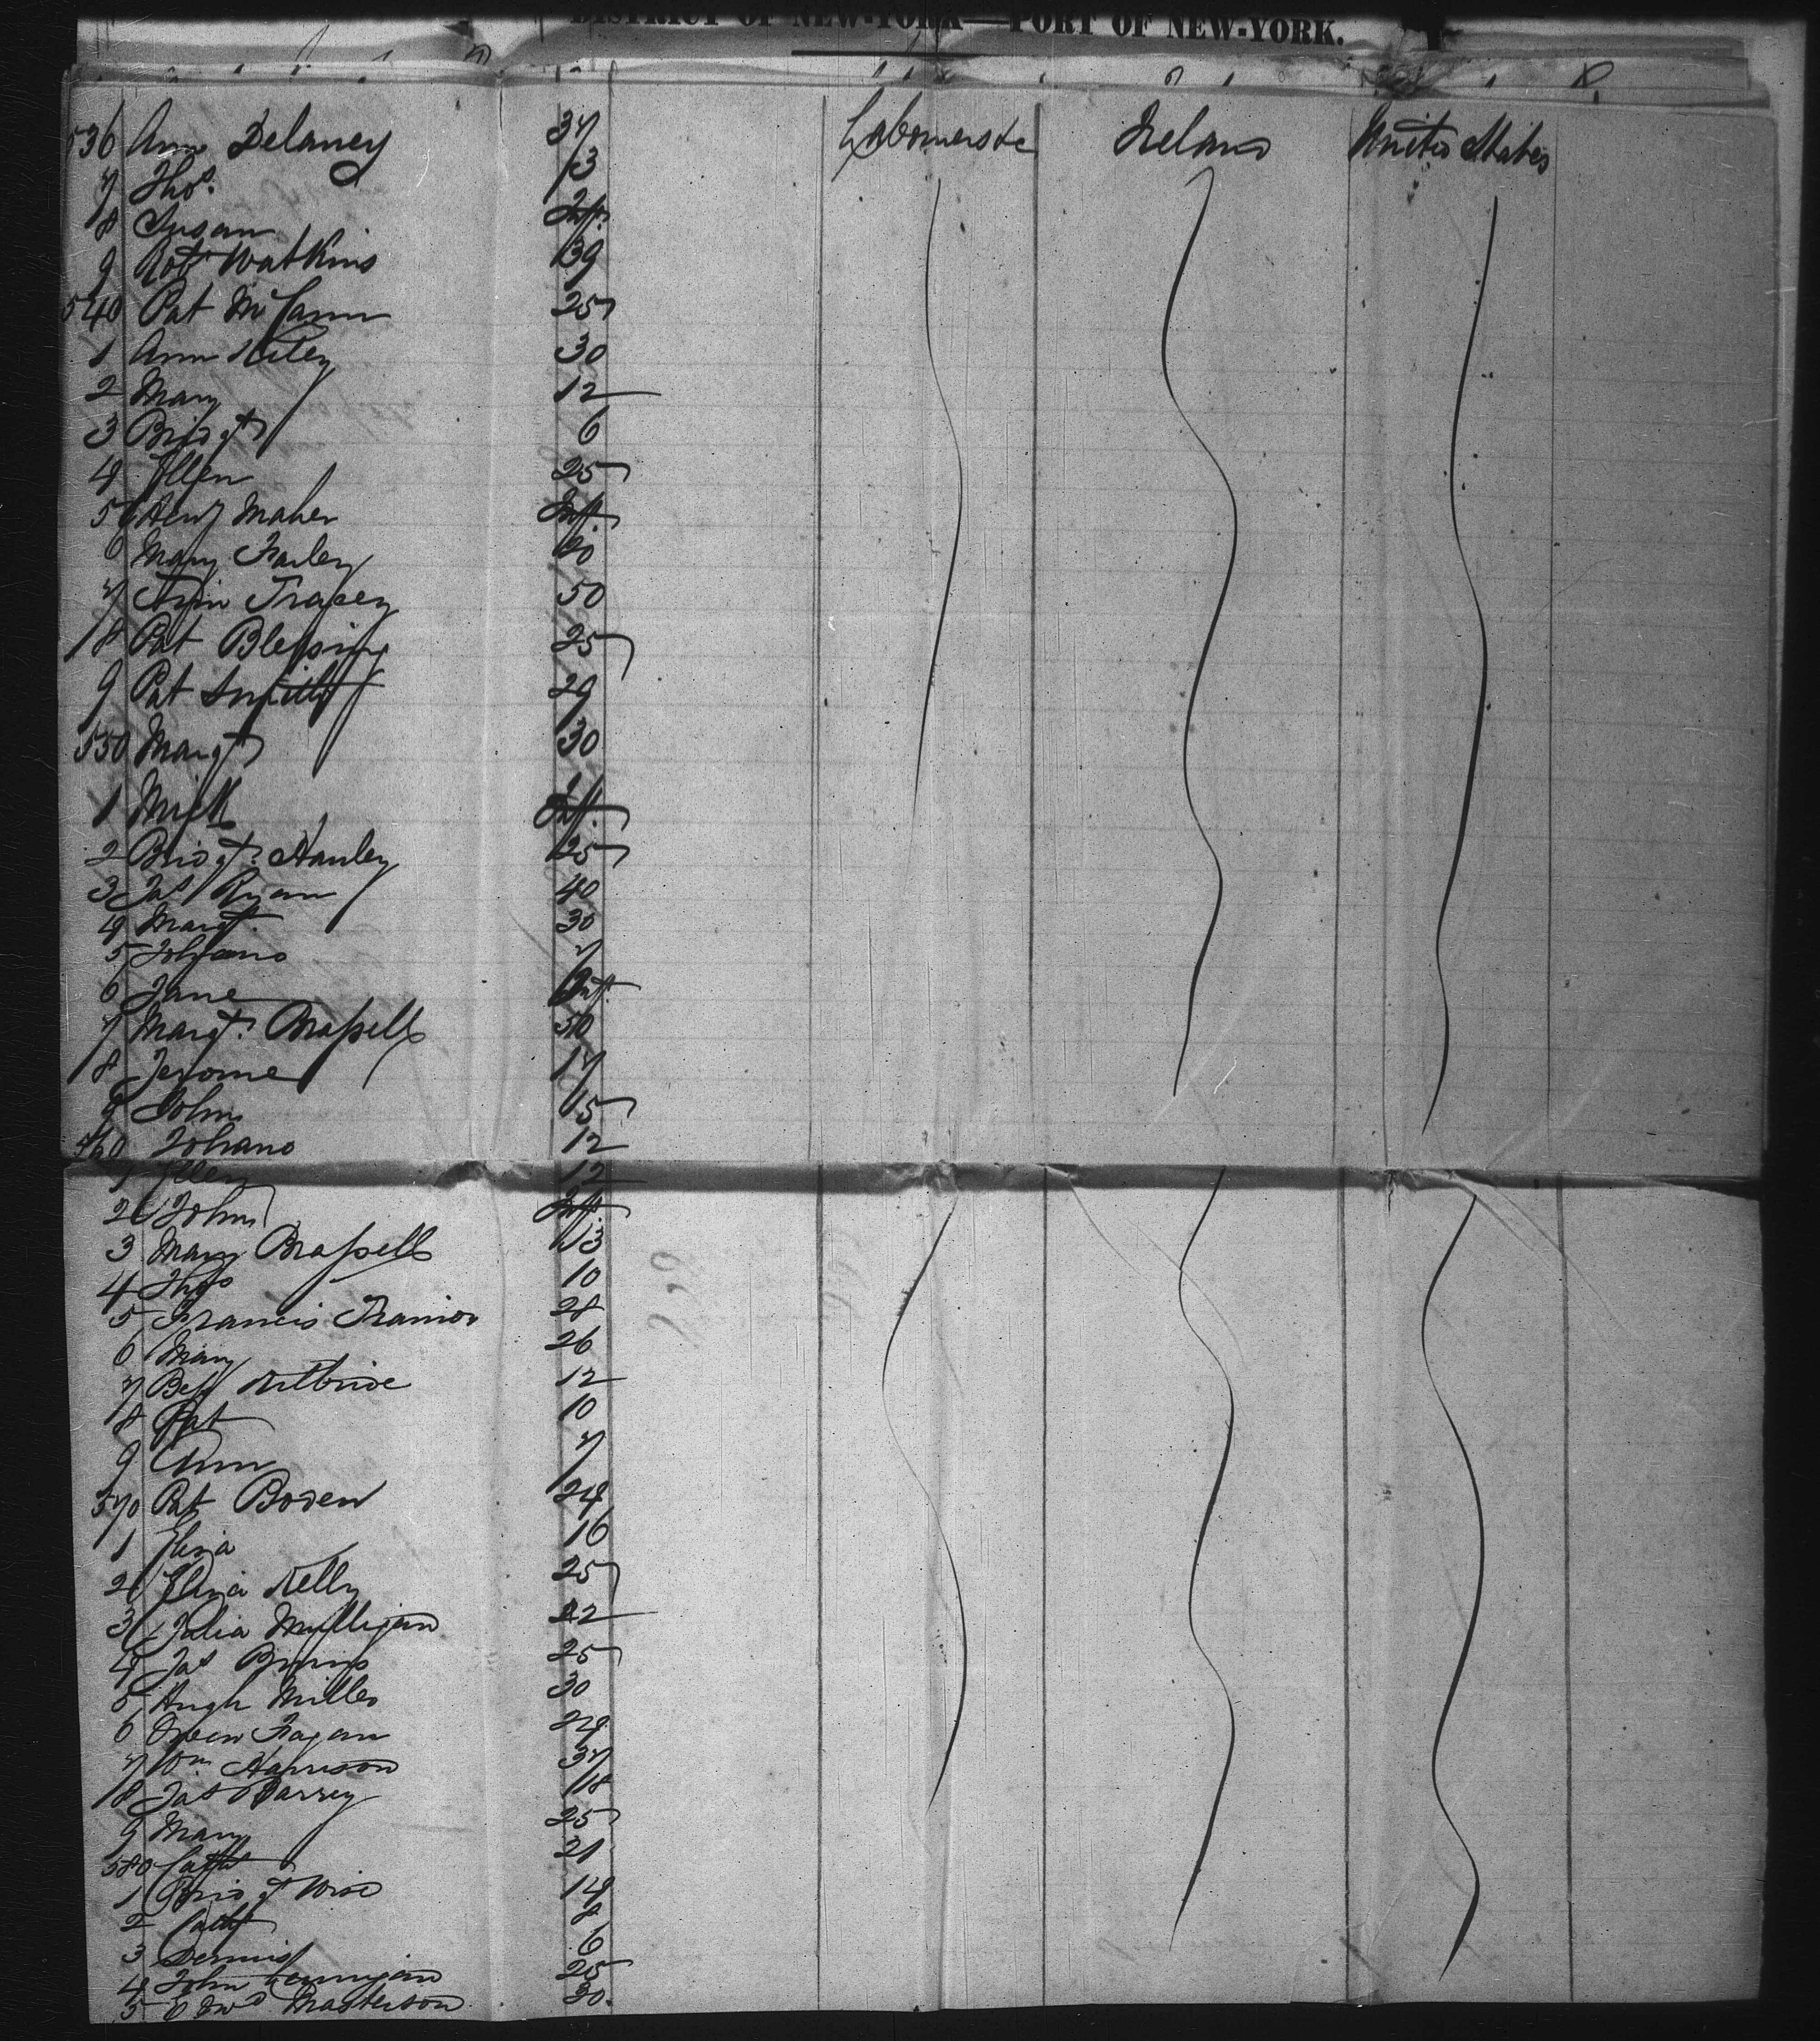 DISTRICT OF NEW-YORK—PORT OF NEW-YORK.
536 Ann Delaney 37 Labourers &c Ireland United States
7 Thos. 3
8 Susan Inft.
9 Robt Watkins 39
540 Pat McCann 25
1 Ann Riley 30
2 Mary 12
3 Bridgt 6
4 Ellen 25
5 Henry Maher Inft.
6 Mary Farley 20
7 Ann Tracey 50
8 Pat Blessing 25
9 Pat Smith 29
550 Margt 30
1 Mick Inft.
2 Bridgt. Hanley 25
3 Jas Ryan 40
4 Margt. 30
5 Johano 7
6 Jane Inft.
7 Margt. Brassell 50
8 Jerome 17
9 John 15
560 Johano 12
1 Ellen 12
2 John Inft.
3 Mary Brassell 13
4 Thos 10
5 Francis Trainor 28
6 Mary 26
7 Bess Kilbride 12
8 Pat 10
9 Ann 7
570 Pat Boden 24
1 Eliza 16
2 Eliza Kelly 25
3 Julia Mulligan 22
4 Jas Burns 25
5 Hugh Miller 30
6 Owen Fagan 24
7 Wm Harrison 37
8 Jas Darsey 18
9 Mary 25
580 Cath 21
1 Bridgt Wise 14
2 Cath 8
3 Dennis 6
4 John 25
5 Edwd Masterson 30.